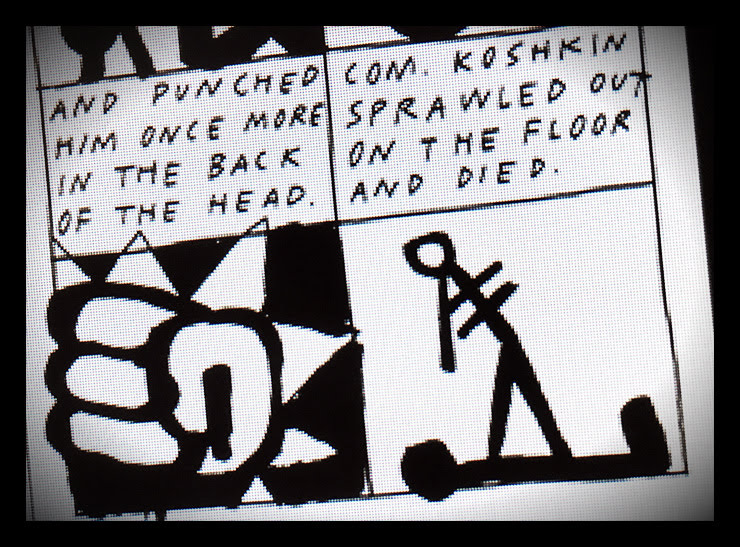 AND PUNCHED
HIM ONCE MORE
IN THE BACK
OF THE HEAD.
COM. KOSHKIN
SPRAWLED OUT
ON THE FLOOR
AND DIED.